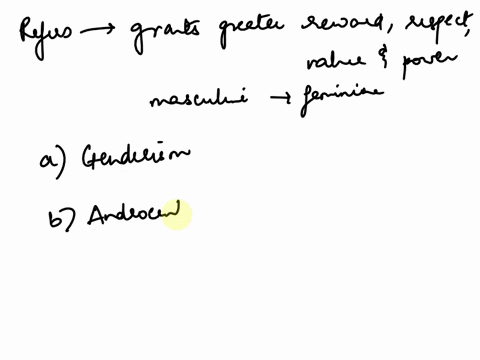 Refers → grants greater reward, respect,
value & power
masculine → feminine
a) Genderism
b) Androcen